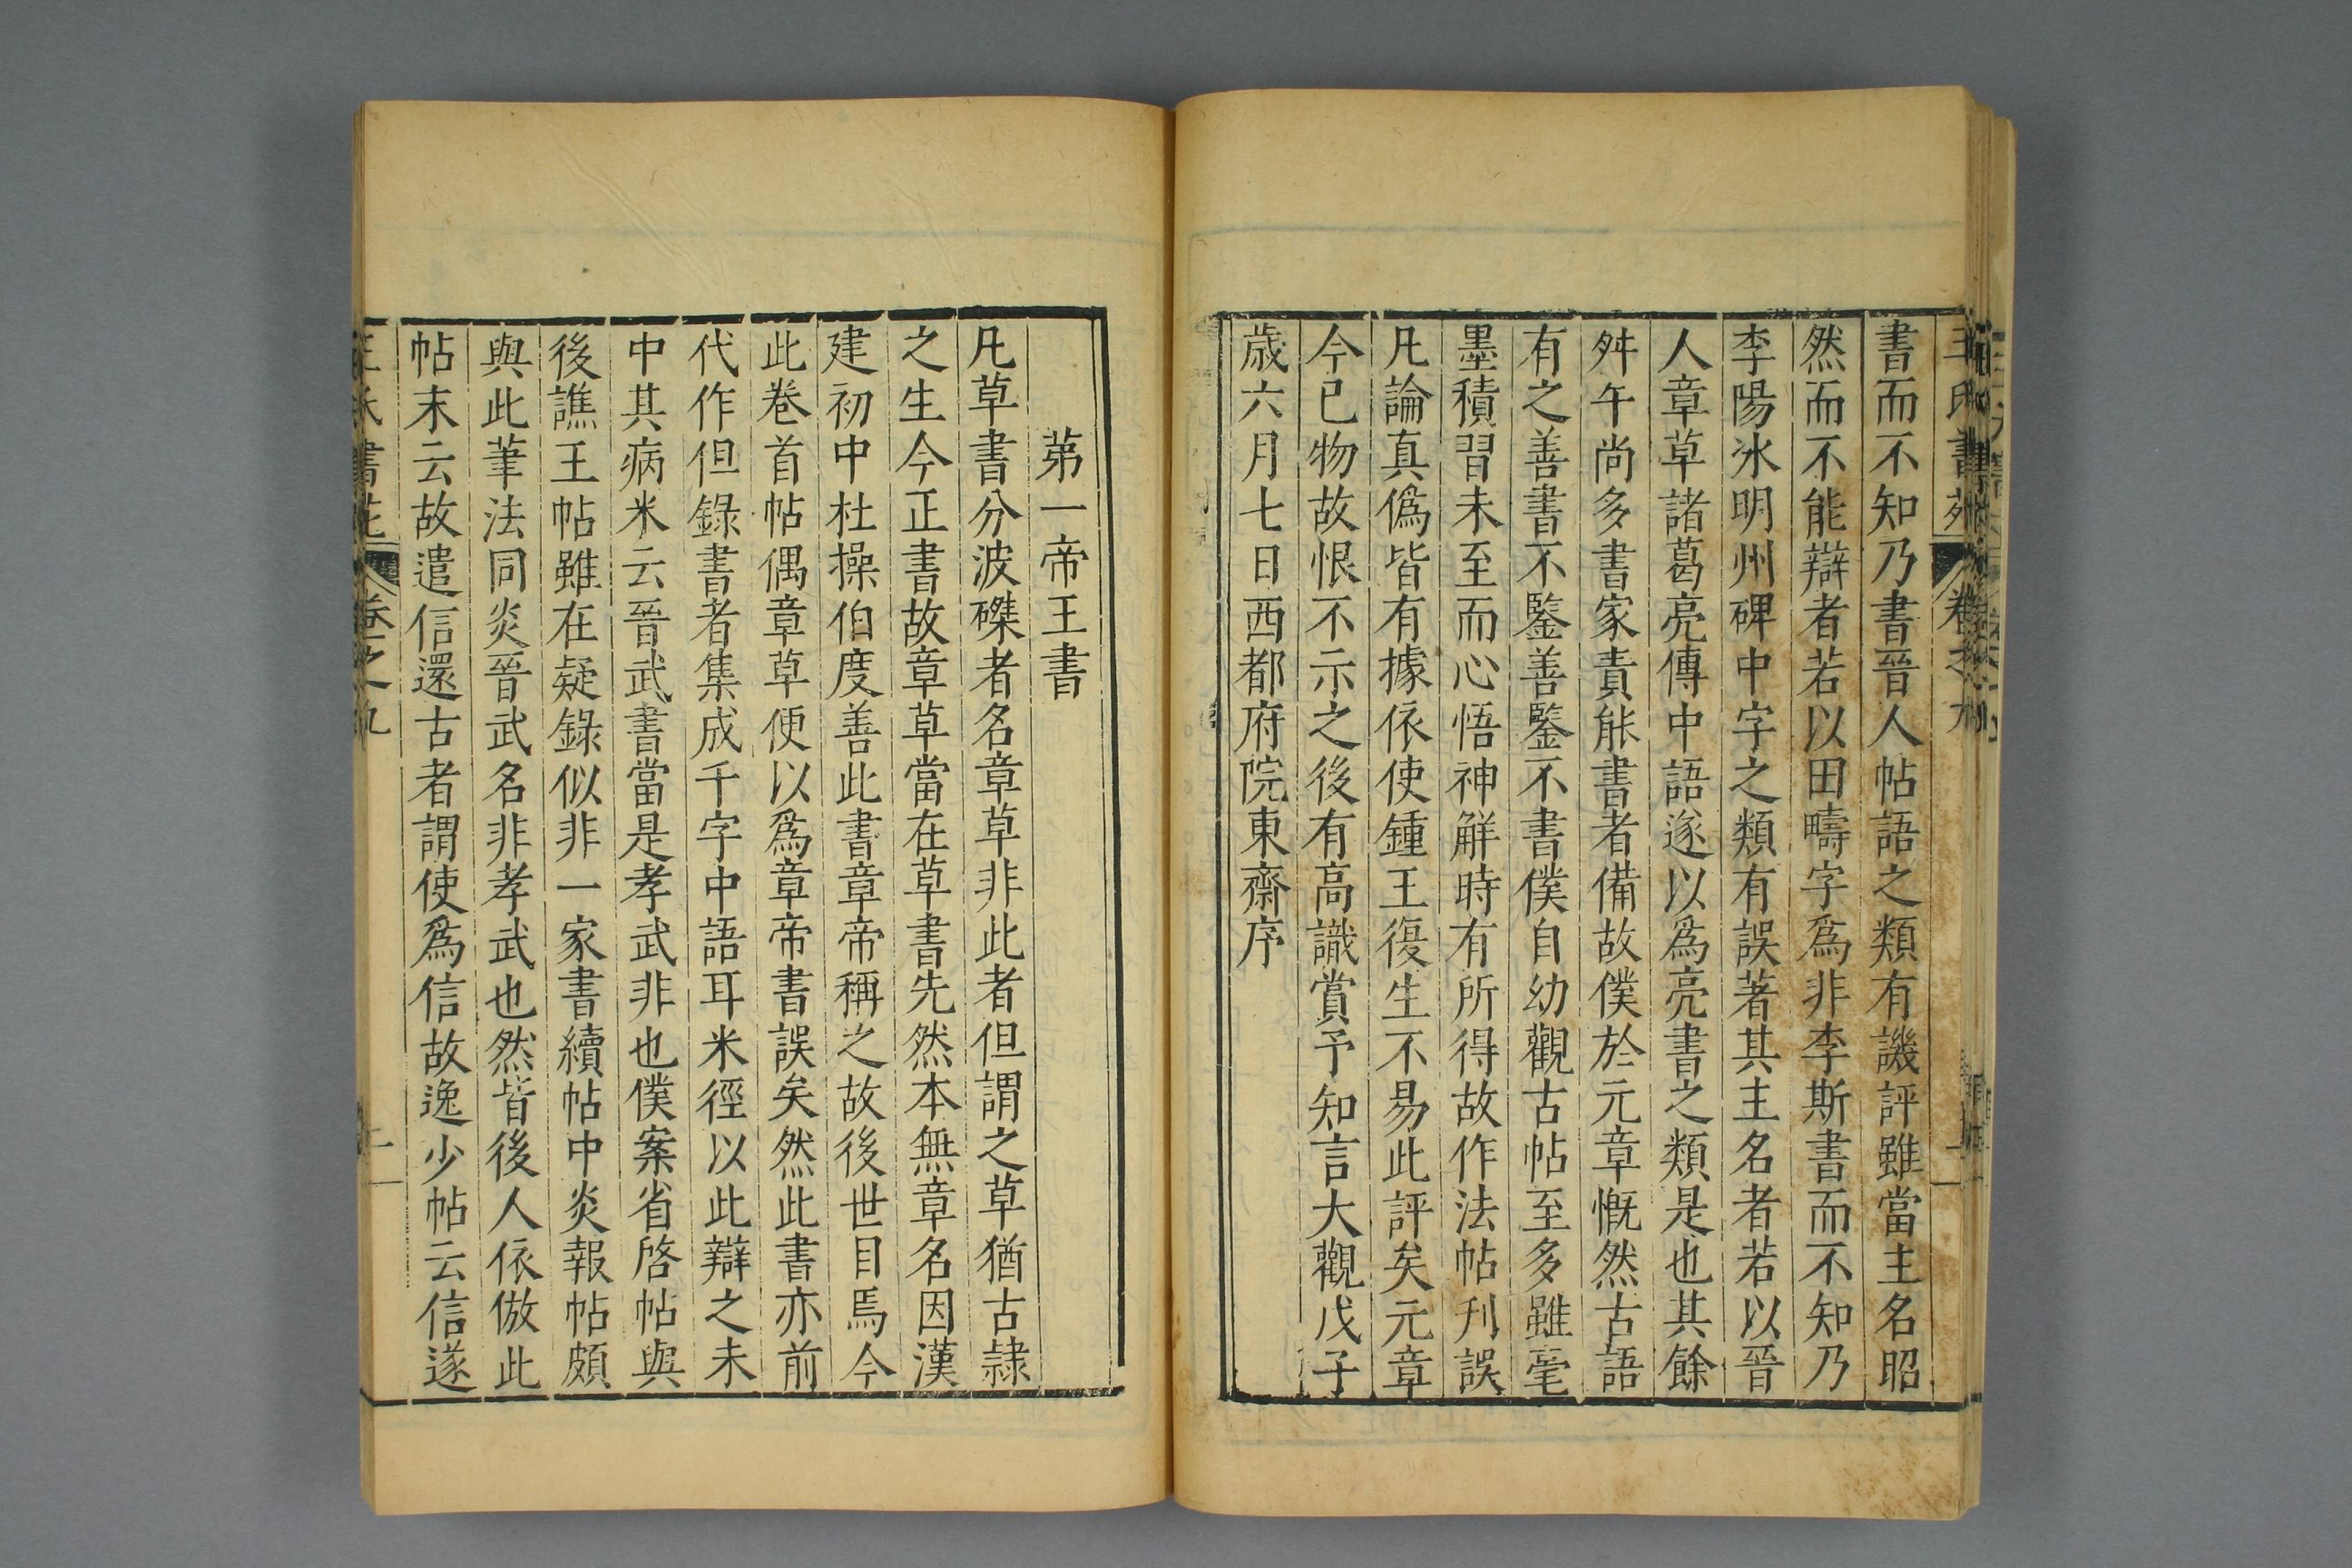 王氏書苑 卷之九
書而不知乃書晉人帖語之類有譏評雖當主名昭
然而不能辯者若以田疇字爲非李斯書而不知乃
李陽冰明州碑中字之類有誤著其主名者若以晉
人章草諸葛亮傳中語遂以爲亮書之類是也其餘
舛午尚多書家責能書者備故僕於元章慨然古語
有之善書不鑒善鑒不書僕自幼觀古帖至多雖毫
墨積習未至而心悟神解時有所得故作法帖刊誤
凡論真僞皆有據依使鍾王復生不易此評矣元章
今已物故恨不示之後有高識賞予知言大觀戊子
歲六月七日西都府院東齋序
第一帝王書
凡草書分波磔者名章草非此者但謂之草猶古隸
之生今正書故章草當在草書先然本無章名因漢
建初中杜操伯度善此書章帝稱之故後世目焉今
此卷首帖偶章草便以爲章帝書誤矣然此書亦前
代作但錄書者集成千字中語耳米徑以此辯之未
中其病米云晉武書當是孝武非也僕案省啓帖與
後譙王帖雖在疑錄似非一家書續帖中炎報帖頗
與此筆法同炎晉武名非孝武也然皆後人依倣此
帖末云故遣信還古者謂使爲信故逸少帖云信遂
王氏書苑 卷之九 二